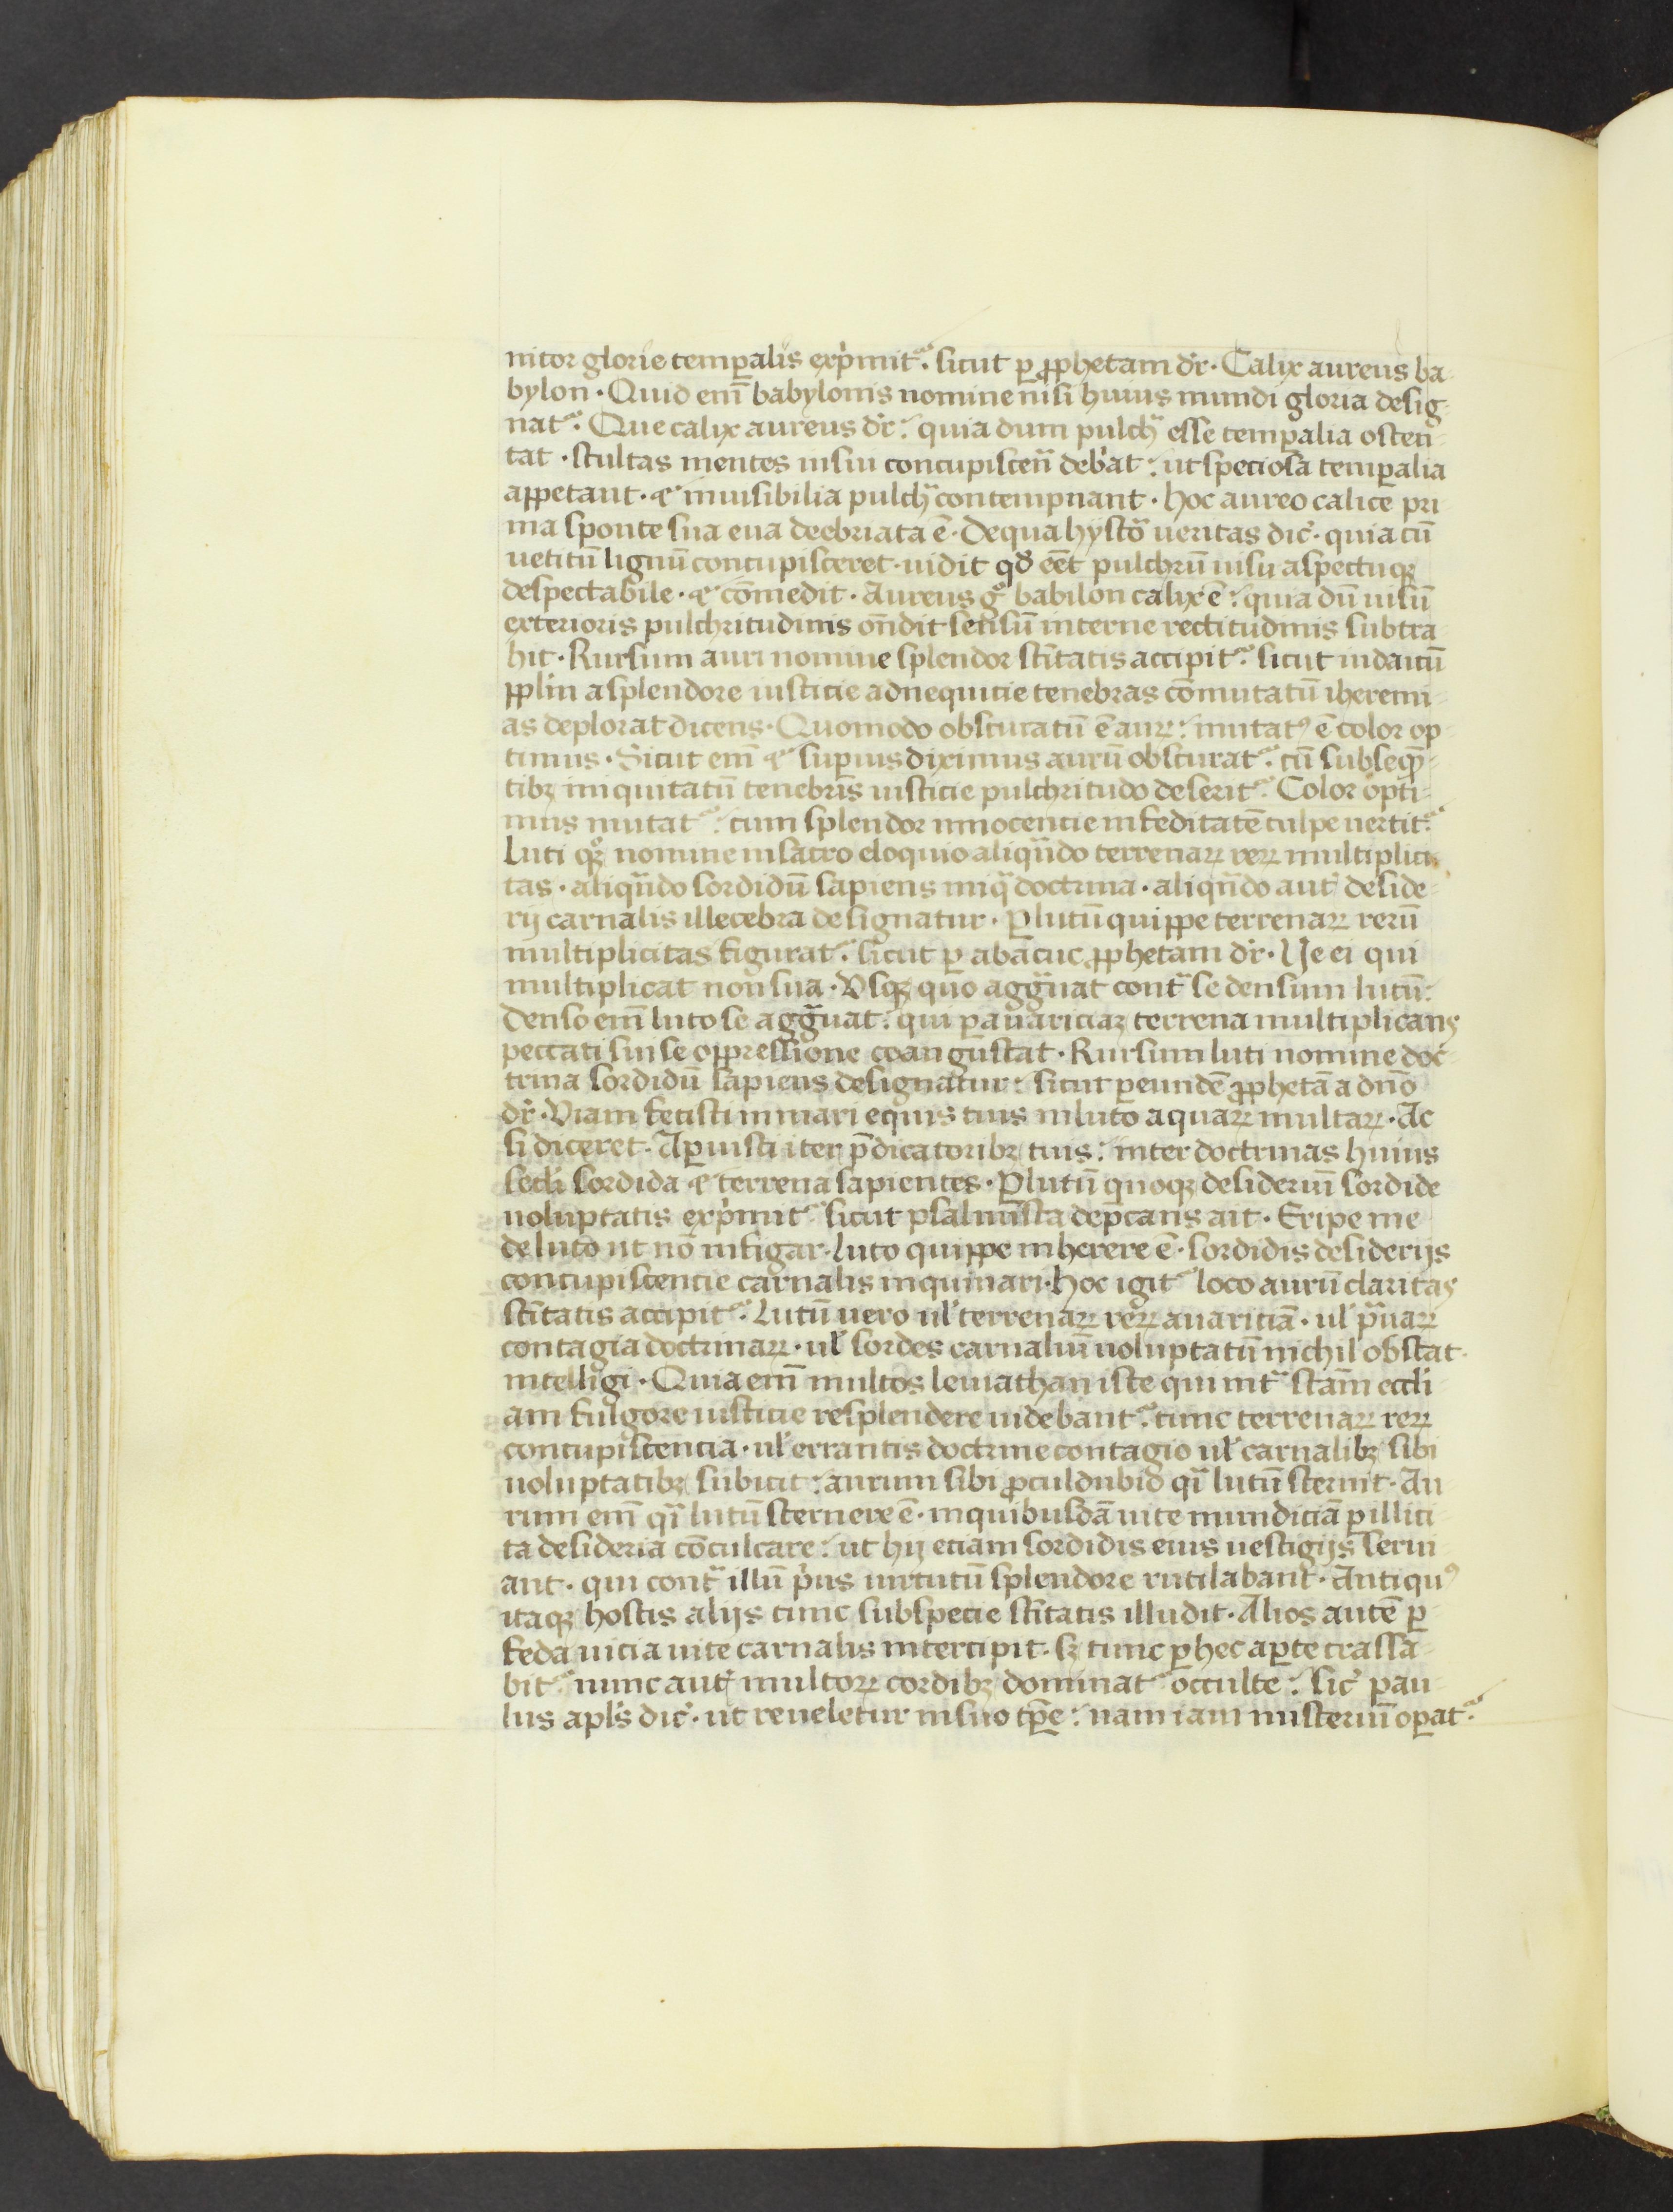 nitor glorie temꝑalis exp̾mit᷑. sicut ꝑ ꝓphetam dr̄. Calix aureus ba-
bylon. Quid em̄ babylonis nomine nisi huius mundi gloria desig-
nat᷑. Que calix aureus dr̄. quia dum pulchͣ esse temꝑalia osten-
tat. stultas mentes in sui concupiscen̄ deb̾at. ut speciosa temꝑalia
appetant. ⁊ inuisibilia pulchͣ contempnant. hoc aureo calice pri-
ma sponte sua eua deebriata ē. De qua hystoͣ ueritas dic̄. quia cū
uetitū lignū concupisceret. uidit qđ eēt pulchrū uisu aspectuqꝫ
despectabile. ⁊ cōmedit. Aureus gͦ babilon calix ē. quia dū uisū
exterioris pulchritudinis on̄dit sensū interne rectitudinis subtra-
hit. Rursum auri nomine splendor sc̄itatis accipit᷑. sicut iudaicū
pp̄lm̄ a splendore iusticie ad nequicie tenebras cōmutatū iheremi-
as deplorat dicens. Quomodo obscuratū ē aurꝫ. mutatꝰ ē color op-
timus. Sicut em̄ ⁊ suꝑius diximus aurū obscurat᷑. cū subseqn̄-
tibꝫ iniquitatū tenebris iusticie pulchritudo deserit᷑. Color opti-
mus mutat᷑. cum splendor innocencie in feditatē culpe uertit᷑.
Luti qͦqꝫ nomine in sacro eloquio aliqn̄do terrenaꝝ reꝝ multiplici-
tas. aliqn̄do sordidū sapiens iniqͣ doctrina. aliqn̄do aut̄ deside-
rij carnalis illecebra designatur. Ꝑ lutū quippe terrenaꝝ rerū
multiplicitas figurat᷑. sicut ꝑ abacuc ꝓphetam dr̄. Ve ei qui
multiplicat non sua. Vsqꝫ quo aggͣuat contͣ se densum lutū.
Denso em̄ luto se aggͣuat. qui ꝑ auariciaꝫ terrena multiplicans
peccati sui se oppressione coangustat. Rursum luti nomine doc-
trina sordidū sapiens designatur. sicut ꝑ eundē ꝓphetā a dn̄o
dr̄. Viam fecisti in mari equis tuis in luto aquaꝝ multaꝝ. Ac
si diceret. Aꝑuisti iter p̄dicatoribꝫ tuis. inter doctrinas huius
sec̄li sordida ⁊ terrena sapientes. Ꝑ lutū quoqꝫ desideriū sordide
uoluptatis exp̾mit᷑ sicut psalmista dep̄cans ait. Eripe me
de luto ut nō infigar. luto quippe inherere ē. sordidis desiderijs
concupiscencie carnalis inquinari. hoc igit᷑ loco aurū claritas
sc̄itatis accipit᷑. Lutū uero ul̄ terrenaꝝ reꝝ auariciā. ul̄ pͣuaꝝ
contagia doctrinaꝝ. ul̄ sordes carnaliū uoluptatū nichil obstat
intelligi. Quia em̄ multos leuiathan iste qui intͣ sc̄am ecc̄li-
am fulgore iusticie resplendere uidebant᷑. tunc terrenaꝝ reꝝ
concupiscencia. ul̄ errantis doctrine contagio ul̄ carnalibꝫ sibi
uoluptatibꝫ subicit. aurum sibi ꝓculdubio qͣi lutū sternit. Au-
rum em̄ qͣi lutū sternere ē. in quibusdā uite mundiciā ꝑ illici-
ta desideria cōculcare. ut hij etiam sordidis eius uestigijs serui-
ant. qui contͣ illū p̾us uirtutū splendore rutilabant. Antiquꝰ
itaqꝫ hostis alijs tunc sub specie sc̄itatis illudit. Alios autē ꝑ
feda uicia uite carnalis intercipit. sꝫ tunc ꝑ hec aꝑte crassa-
bit᷑. nunc aut̄ multoꝝ cordibꝫ dominat᷑ occulte. sic̄ pau-
lus apl̄s dic̄. ut reueletur in suo tp̄e. nam iam misteriū oꝑat᷑.